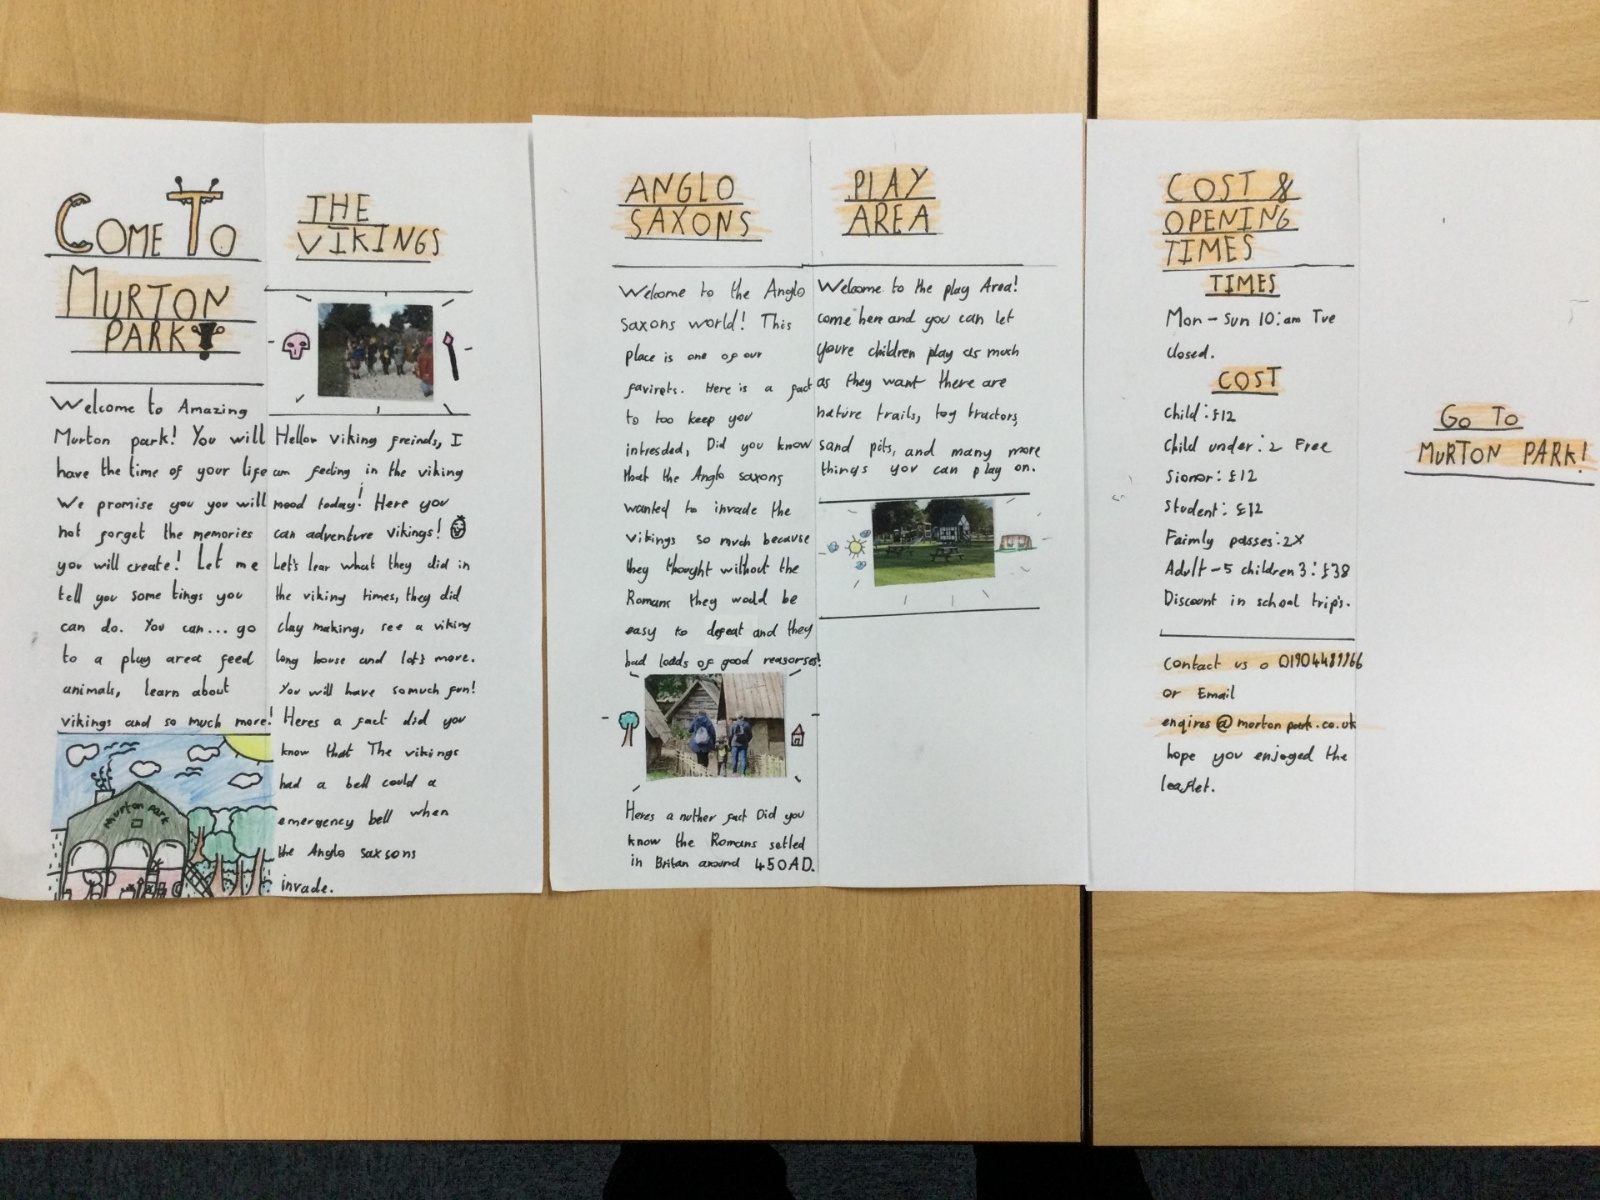 COME TO
MURTON
PARK
Welcome to Amazing
Murton park! You will
have the time of your life
We promise you you will
not forget the memories
you will create! Let me
tell you some tings you
can do. You can... go
to a play area feed
animals, learn about
vikings and so much more!
Murton park
THE
VIKINGS
Hellor viking freinds, I
am feeling in the viking
mood today! Here you
can adventure vikings!
Let's lear what they did in
the viking times, they did
clay making, see a viking
long house and lots more.
You will have so much fun!
Heres a fact did you
know that The vikings
had a bell could a
emergency bell when
the Anglo saxsons
invade.
ANGLO
SAXONS
Welcome to the Anglo
saxons world! This
place is one of our
favirets. Here is a fact
to too keep you
intresded, Did you know
that the Anglo saxons
wanted to invade the
vikings so much because
they thought without the
Romans they would be
easy to defeat and they
had loads of good reasorses!
Heres a nuther fact Did you
know the Romans setled
in Britan around 450AD.
PLAY
AREA
Welcome to the play Area!
come here and you can let
youre children play as much
as they want there are
nature trails, toy tractors,
sand pits, and many more
things you can play on.
COST &
OPENING
TIMES
TIMES
Mon - Sun 10:am Tue
closed.
COST
Child: £12
Child under: 2 Free
Sionor: £12
Student: £12
Faimly passes: 2x
Adult - 5 children 3: £38
Discount in school trip's.
Contact us o
or Email
enqires@morton park.co.uk
hope you enjoyed the
leaflet.
GO TO
MURTON PARK!